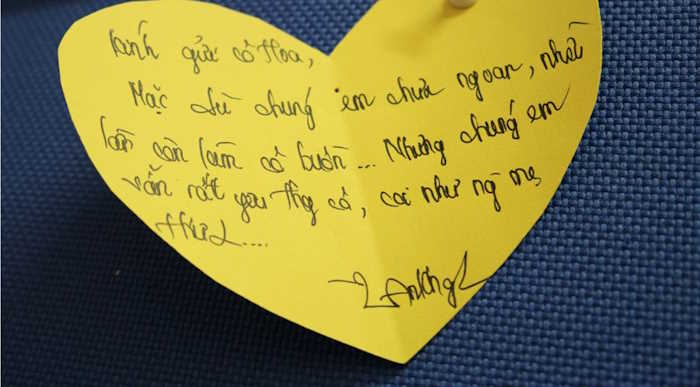 Kính gửi cô Hoa,
Mặc dù chúng em chưa ngoan, nhiều
lần còn làm cô buồn... Nhưng chúng em
vẫn rất yêu thg cô, coi như ng mẹ
thứ 2....